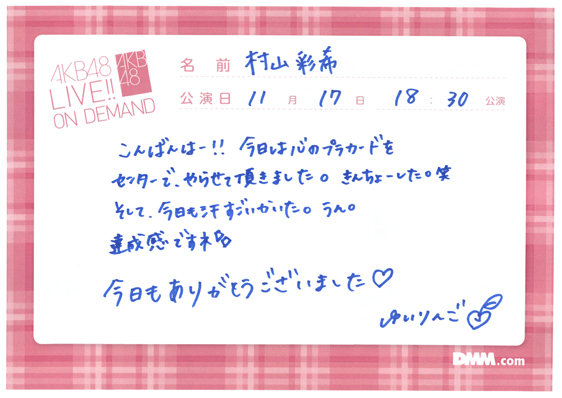 AKB48
LIVE!!
ON DEMAND
AKB
48
名前 村山彩希
公演日 11月17日 18:30公演
こんばんはー!! 今日は心のプラカードを
センターで、やらせて頂きました。きんちょーした。笑
そして、今日も汗すごいかいた。うん。
達成感ですネ
今日もありがとうございました♡
ゆいりんご
DMM.com